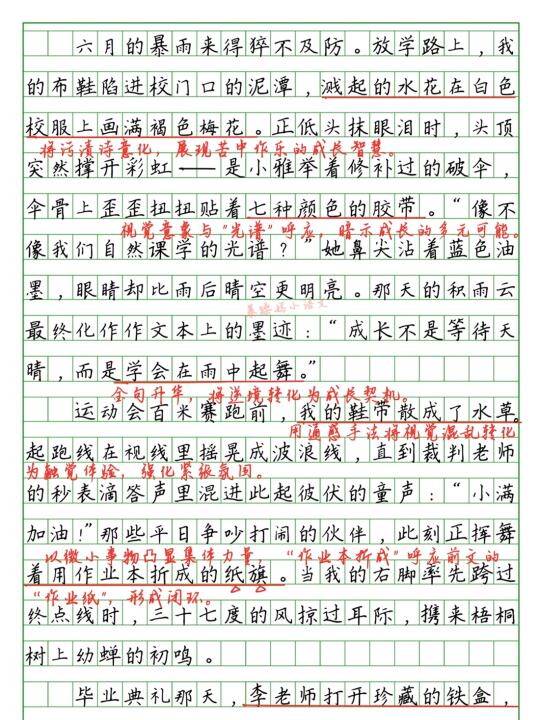 六月的暴雨来得猝不及防。放学路上，我
的布鞋陷进校门口的泥潭，溅起的水花在白色
校服上画满褐色梅花。正低头抹眼泪时，头顶
将污渍诗意化，展现苦中作乐的成长智慧。
突然撑开彩虹——是小雅举着修补过的破伞，
伞骨上歪歪扭扭贴着七种颜色的胶带。“像不
视觉意象与“光谱”呼应，暗示成长的多元可能。
像我们自然课学的光谱？”她鼻尖沾着蓝色油
墨，眼睛却比雨后晴空更明亮。那天的积雨云
最终化作作文本上的墨迹：“成长不是等待天
晴，而是学会在雨中起舞。”
金句升华，将逆境转化为成长契机。
运动会百米赛跑前，我的鞋带散成了水草。
用通感手法将视觉混乱转化
起跑线在视线里摇晃成波浪线，直到裁判老师
为触觉体验，强化紧张氛围。
的秒表滴答声里混进此起彼伏的童声：“小满
加油！”那些平日争吵打闹的伙伴，此刻正挥舞
以微小事物凸显集体力量，“作业本折成”呼应前文的
着用作业本折成的纸旗。当我的右脚率先跨过
“作业纸”，形成闭环。
终点线时，三十七度的风掠过耳际，携来梧桐
树上幼蝉的初鸣。
毕业典礼那天，李老师打开珍藏的铁盒，